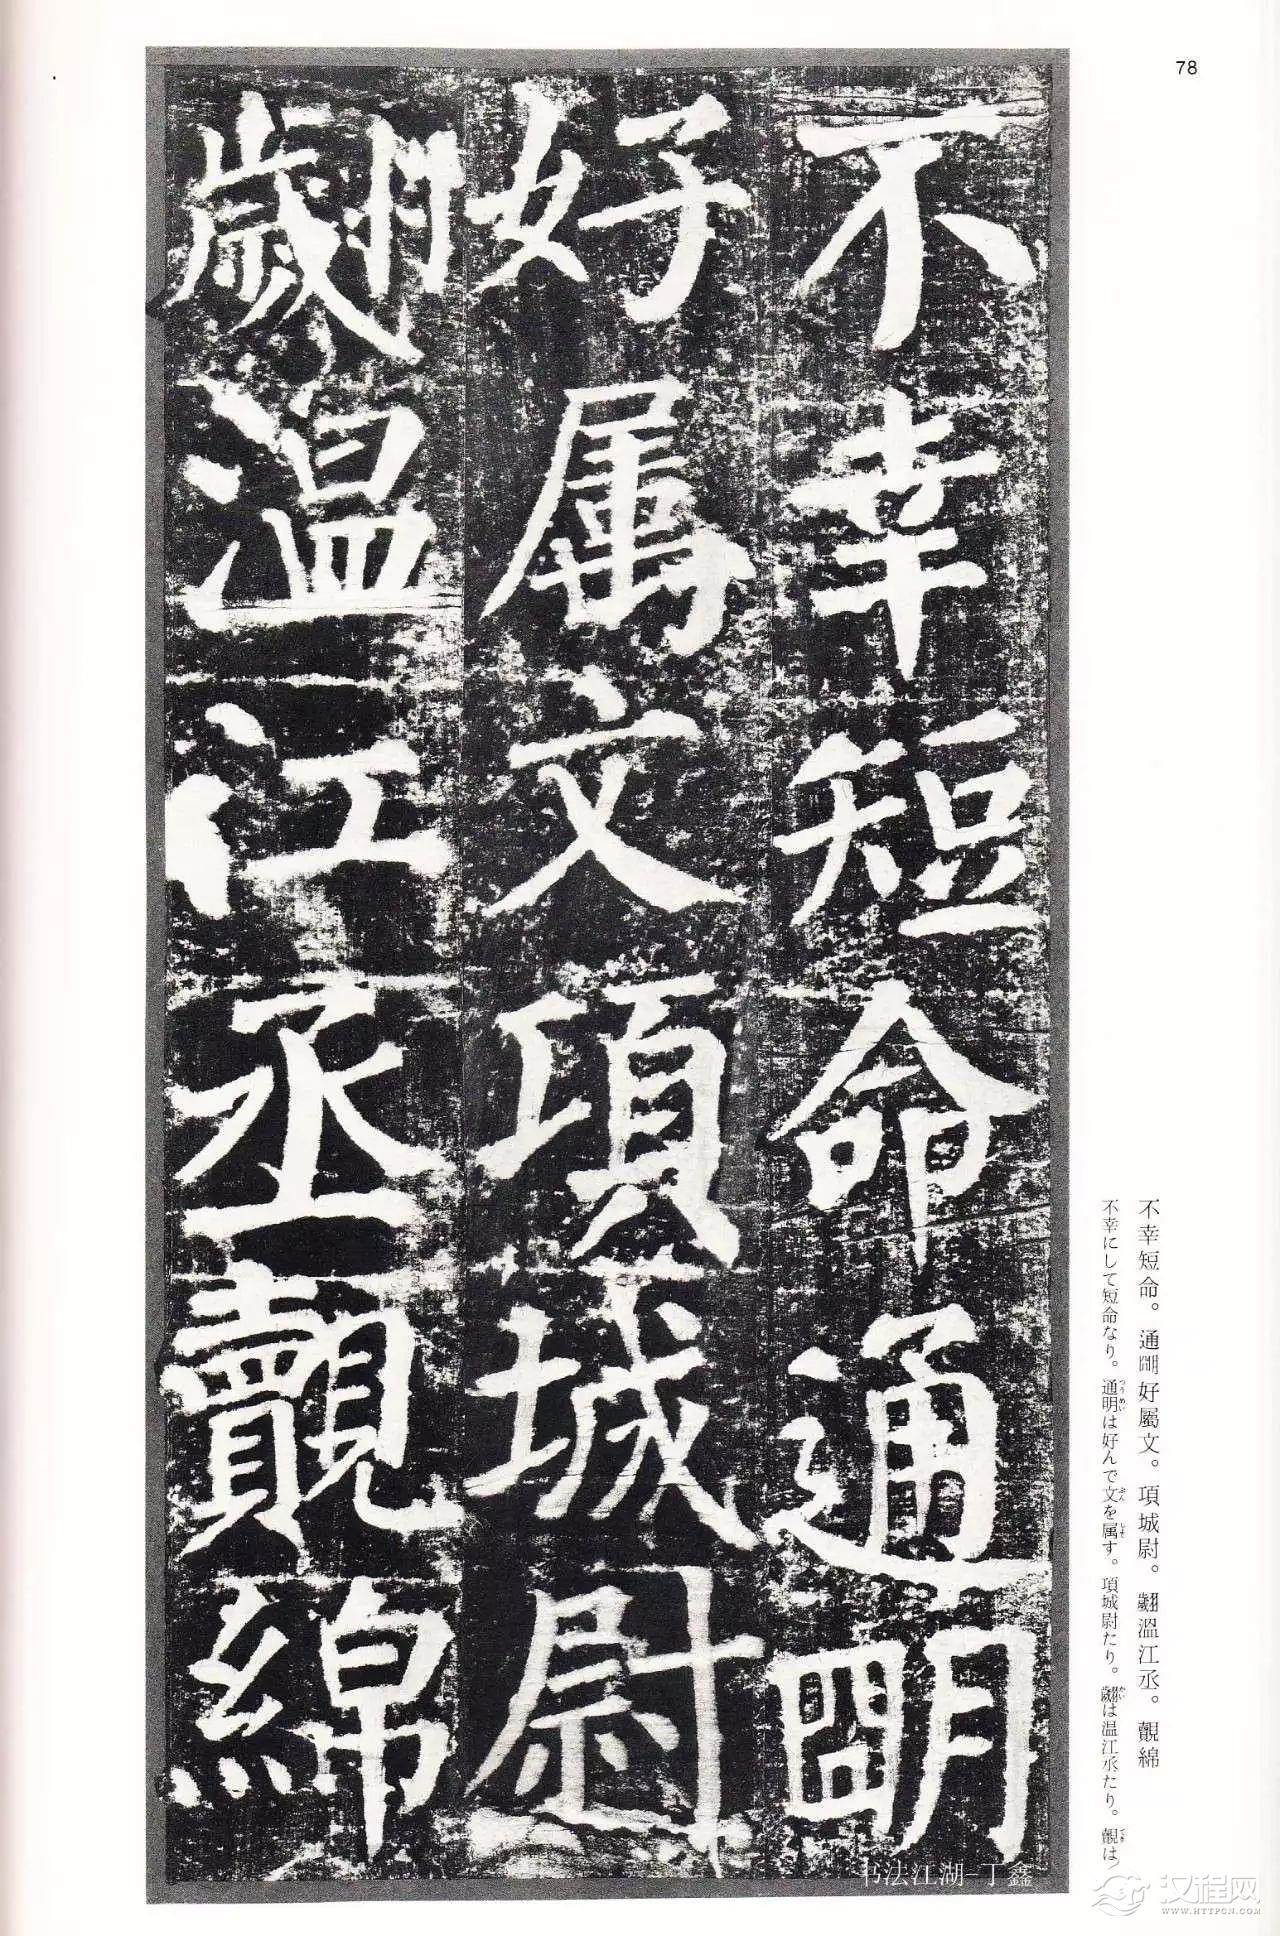 78
不幸短命通明
好属文項城尉
翽温江丞覿綿
不幸短命。通明好屬文。項城尉。翽溫江丞。覿綿
不幸にして短命なり。通明は好んで文を属す。項城尉たり。翽は温江丞たり。覿は
つうめい
ぶん
しょく
かい
てき
书法江湖-丁鑫
汉程网
WWW.HTTPCN.COM